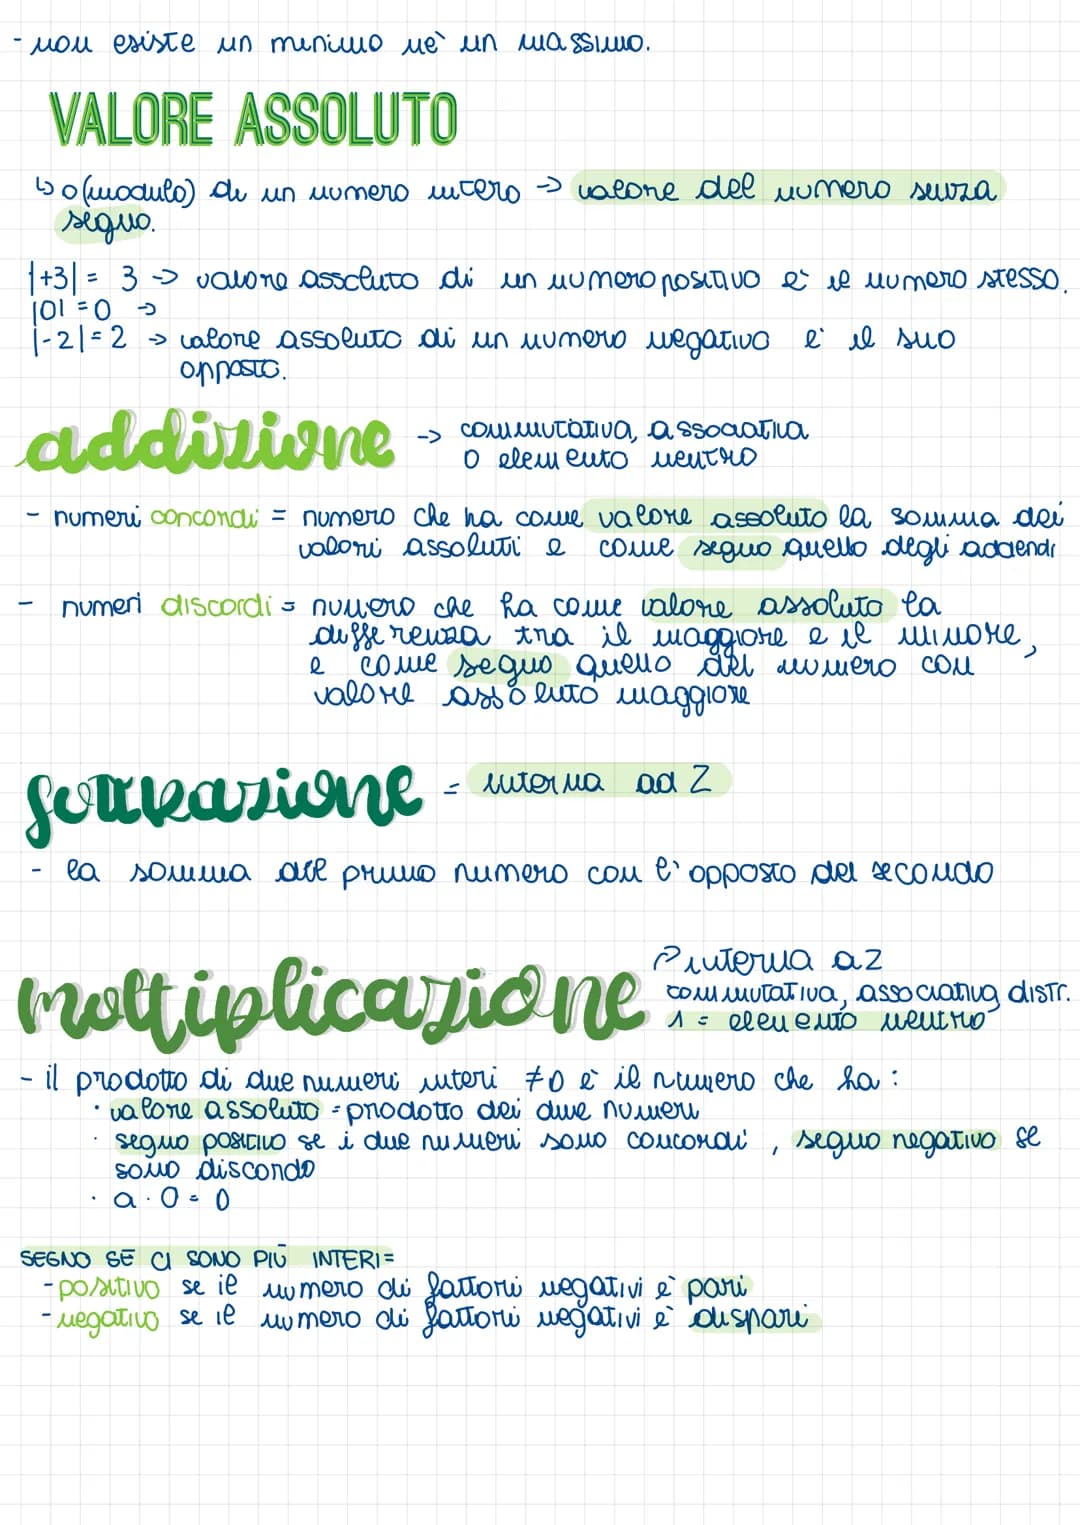 - non esiste un minimo nè un massimo.
VALORE ASSOLUTO
↳ o (modulo) di un numero intero -> valore del numero senza
segno.
|+3| = 3 -> valore assoluto di un numero positivo è il numero stesso.
|0| = 0 ->
|-2| = 2 -> valore assoluto di un numero negativo è il suo
opposto.
addizione -> commutativa, associativa
0 elemento neutro
- numeri concordi = numero che ha come valore assoluto la somma dei
valori assoluti e come segno quello degli addendi
- numeri discordi = numero che ha come valore assoluto la
differenza tra il maggiore e il minore,
e come segno quello del numero con
valore assoluto maggiore
sottrazione = interna ad Z
- la somma del primo numero con l'opposto del secondo
moltiplicazione
interna a Z
commutativa, associativa, distr.
1 = elemento neutro
- il prodotto di due numeri interi ≠0 è il numero che ha:
· valore assoluto = prodotto dei due numeri
· segno positivo se i due numeri sono concordi, segno negativo se
sono discordo
· a · 0 = 0
SEGNO SE CI SONO PIÙ INTERI =
- positivo se il numero di fattori negativi è pari
- negativo se il numero di fattori negativi è dispari